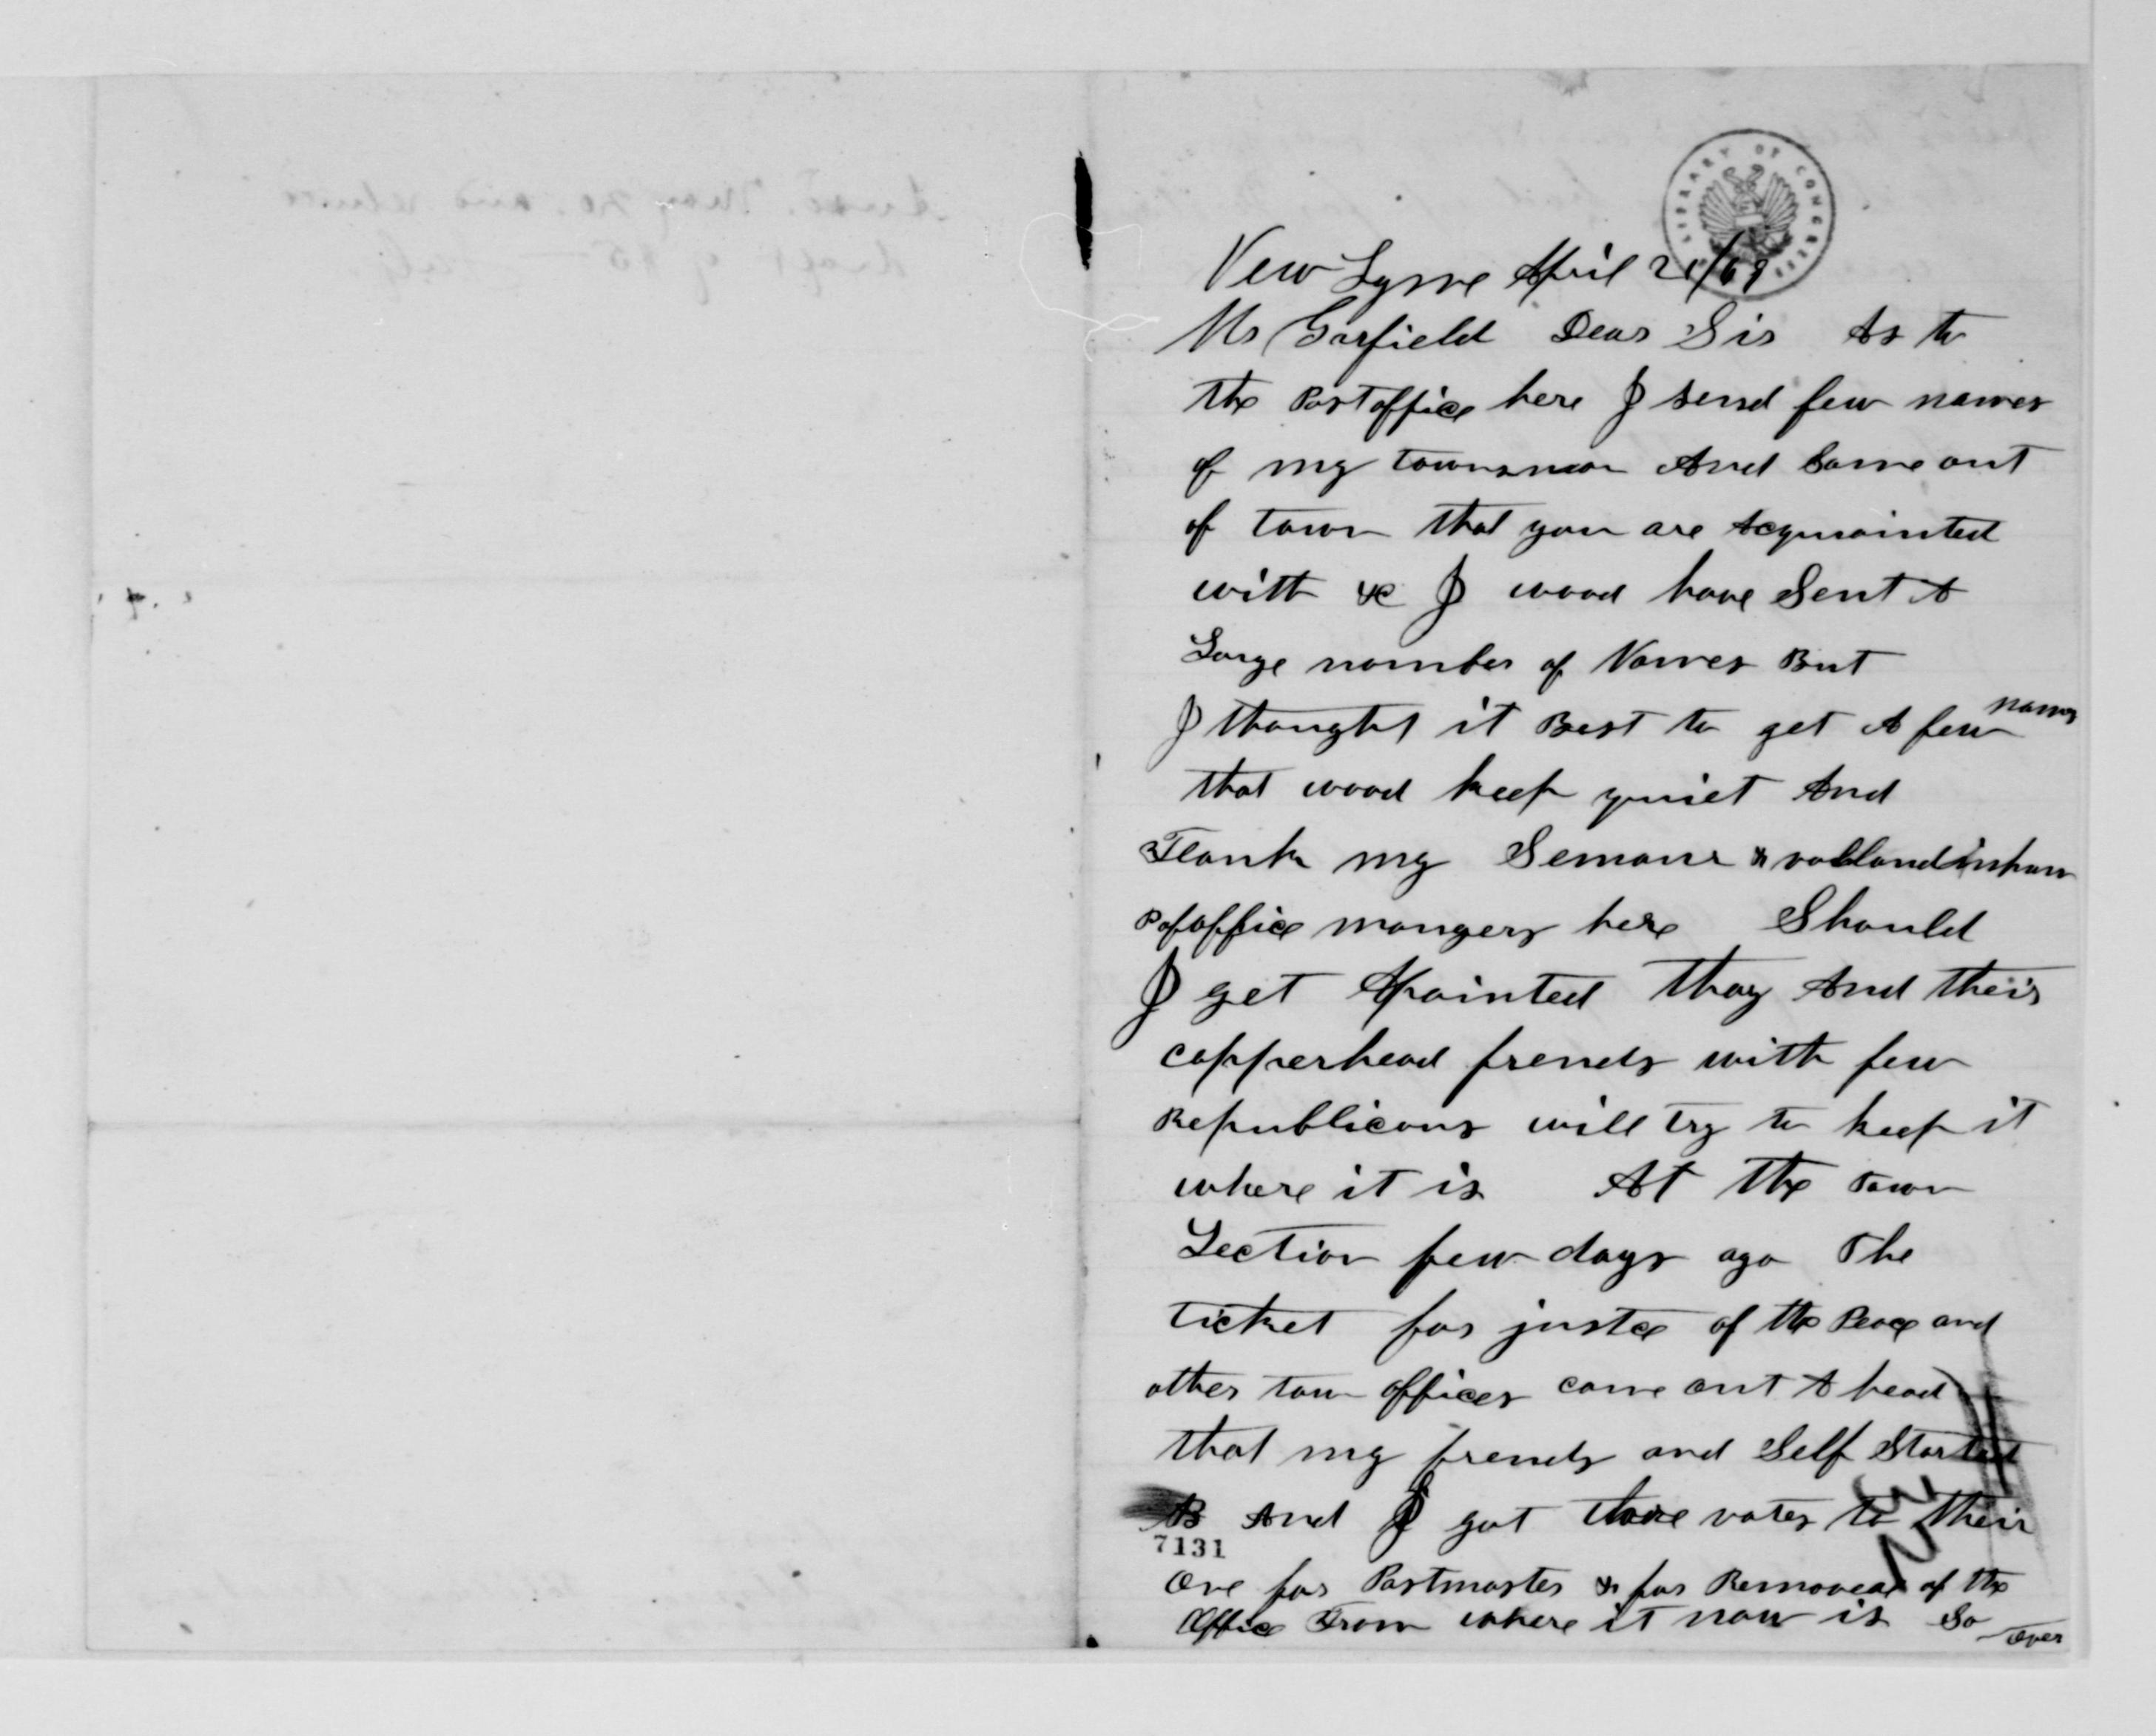 New Lyme April 21/69
Mr Garfield Dear Sir As to
the Postoffice here I send few names
of my townsmen And Some out
of town that you are Acquainted
with &c I wood have Sent A
Large nomber of Names But
I thought it Best to get A few names
that wood keep quiet And
Flank my & vallandinham
office mongers here Should
I get Apointed thay And their
copperhead frends with few
Republicans will try to keep it
where it is At the Town
Lection few days ago The
ticket for justce of the Peace and
other town offices come out A head
that my frends and Self Started
And I got votes to their
One for Postmaster & for Removeal of the
Office From where it now is So
over
7131
LIBRARY OF CONGRESS